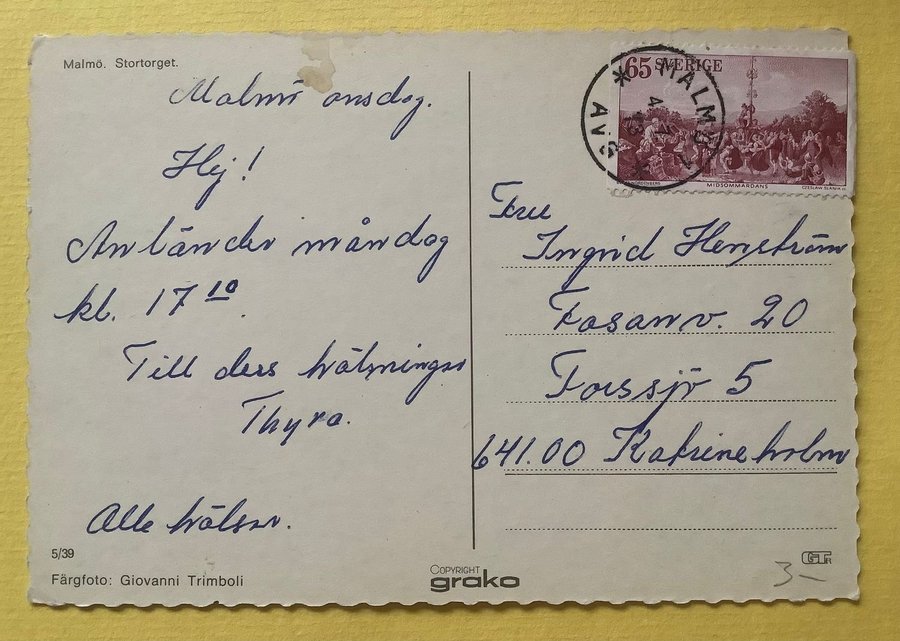 Malmö. Stortorget.
Malmö onsdag.
Hej!
Anländer måndag
kl. 17 10
Till dess hälsningar
Thyra.
Alle hälsar.
5/39
Färgfoto: Giovanni Trimboli
COPYRIGHT
grako
65 SVERIGE
MIDSOMMARDANS
CZESLAW SLANIA
MALMÖ 1
4 7 73
AVG
Fru
Ingrid
Fasanv. 20
Forssjö 5
641.00 Katrineholm
3—